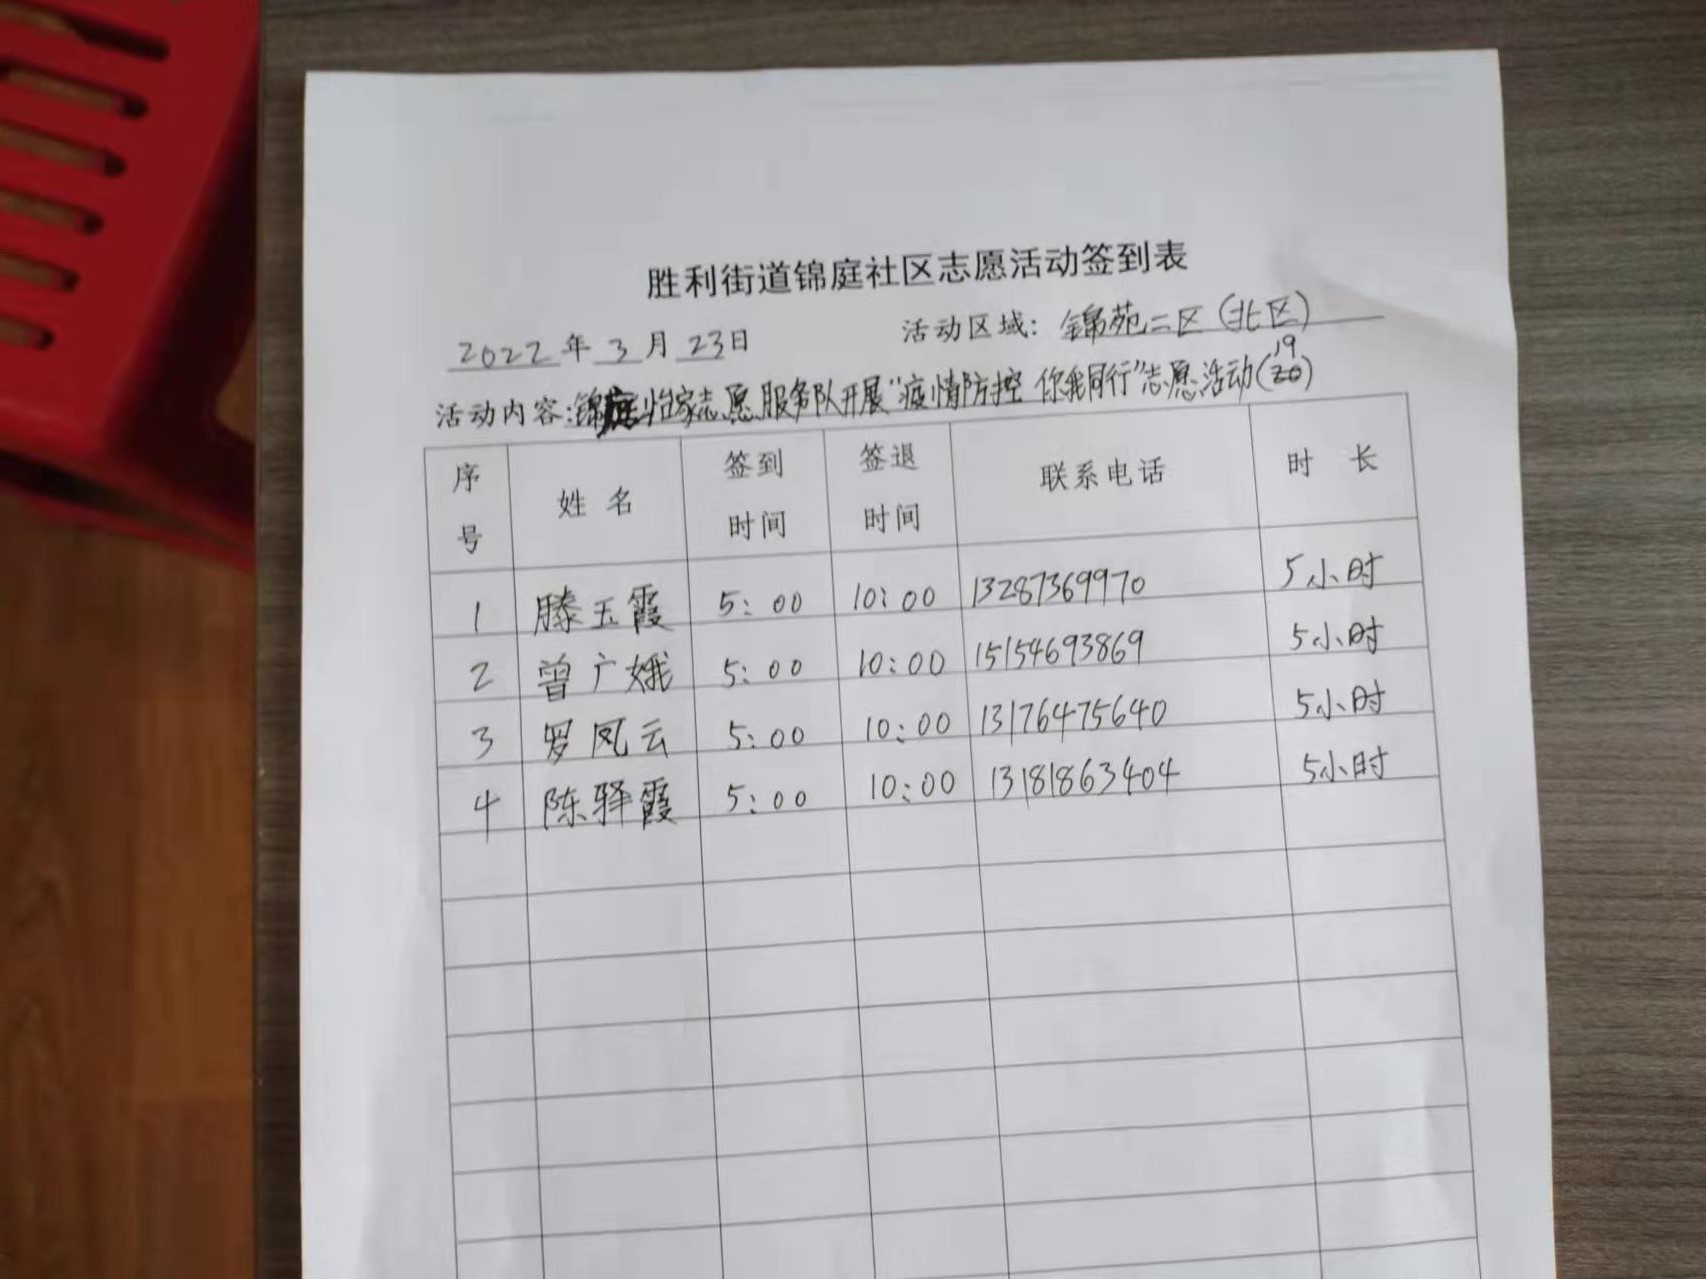 胜利街道锦庭社区志愿活动签到表
2022年3月23日 活动区域：锦苑二区（北区）
活动内容：锦庭怡家志愿服务队开展“疫情防控 你我同行”志愿活动(19)
序号 姓名 签到时间 签退时间 联系电话 时长
1 滕玉霞 5:00 10:00 13287369970 5小时
2 曾广娥 5:00 10:00 15154693869 5小时
3 罗凤云 5:00 10:00 13176475640 5小时
4 陈驿霞 5:00 10:00 13181863404 5小时